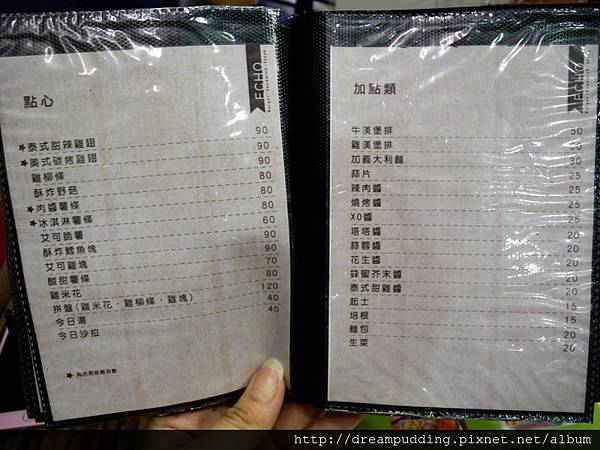 ECHO
點心
★泰式甜辣雞翅 90
★美式碳烤雞翅 90
雞柳條 90
酥炸野菇 80
★肉醬薯條 80
★冰淇淋薯條 80
艾可脆薯 60
酥炸鱈魚塊 90
艾可雞塊 90
酸甜薯條 70
雞米花 80
拼盤(雞米花，雞柳條，雞塊) 120
今日湯 40
今日沙拉 40
ECHO
加點類
牛漢堡排 50
雞漢堡排
加義大利麵 30
蒜片 25
辣肉醬 25
燒烤醬 25
XO醬 25
塔塔醬 20
蒜蓉醬 20
花生醬 20
蜂蜜芥末醬 20
泰式甜雞醬 20
起士 15
培根 15
麵包 20
生菜 20
http://dreampudding.pixnet.net/album